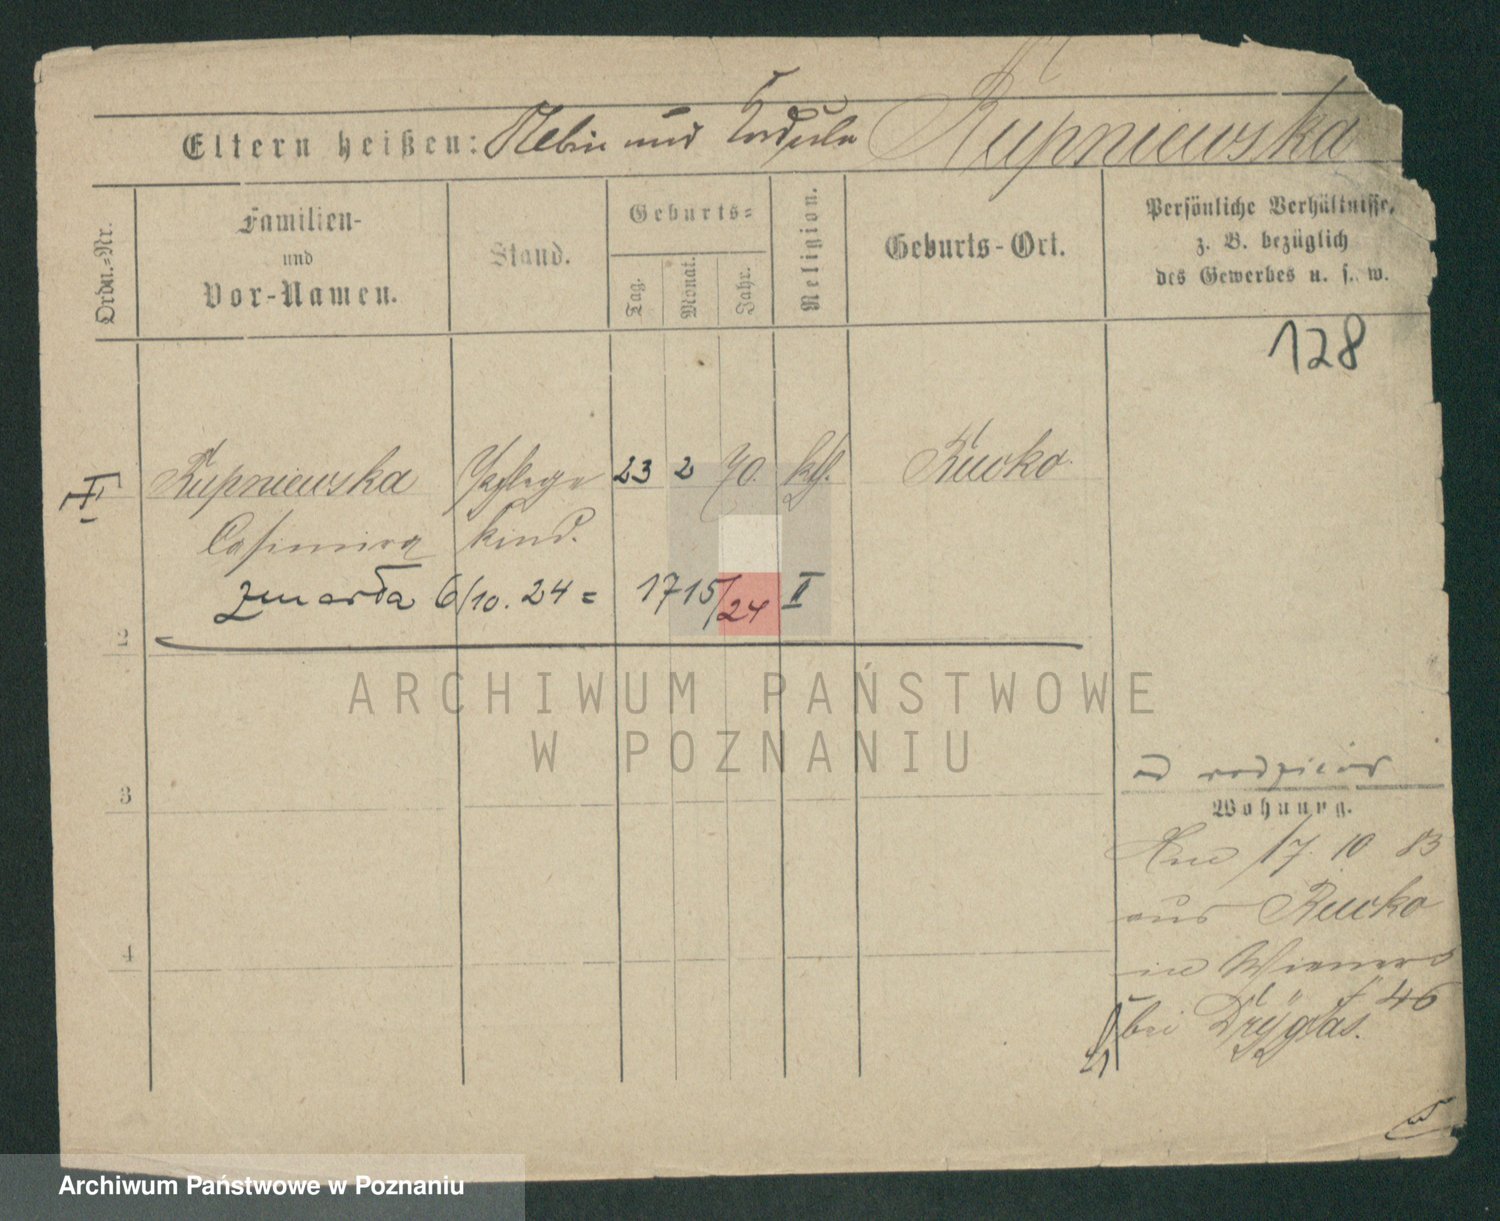 Eltern heißen: und Kordula Rupniewska
Ordn.=Nr.
Familien-
und
Vor-Namen.
Stand.
Geburts=
Tag.
Monat.
Jahr.
Religion.
Geburts-Ort.
Persönliche Verhältnisse,
z. B. bezüglich
des Gewerbes u. s. w.
128
Rupniewska Pflege 23 2 70. kth.
Casimira kind.
zmarła 6/10. 24 = 1715/24 II
2
3
4
od rodziców
Wohnung.
17. 10 83
aus
in
46
bei Dryglas.
ARCHIWUM PAŃSTWOWE
W POZNANIU
Archiwum Państwowe w Poznaniu